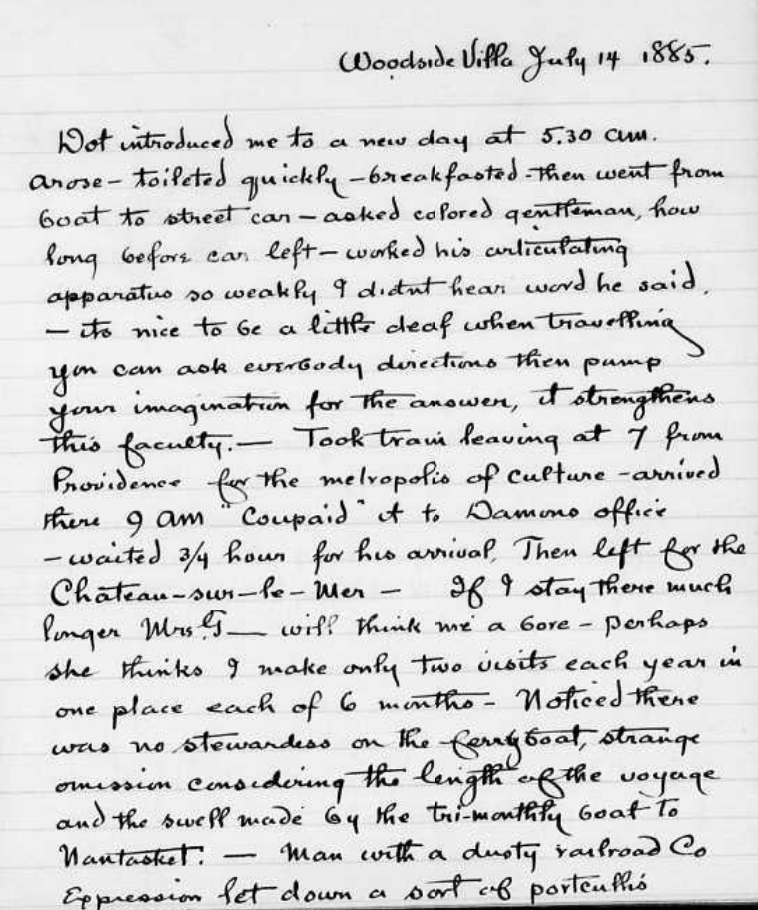 Woodside Villa July 14 1885.
Dot introduced me to a new day at 5.30 am.
arose – toileted quickly – breakfasted – then went from
boat to street car – asked colored gentleman, how
long before car left – worked his articulating
apparatus so weakly I didnt hear word he said.
– its nice to be a little deaf when travelling
you can ask everbody directions then pump
your imagination for the answer, it strengthens
this faculty. – Took train leaving at 7 from
Providence for the metropolis of culture – arrived
there 9 am "Coupaid" it to Damons office
– waited 3/4 hour for his arrival, Then left for the
Chateau-sur-le-Mer – If I stay there much
longer Mrs G — will think me a bore – perhaps
she thinks I make only two visits each year in
one place each of 6 months – Noticed there
was no stewardess on the ferryboat, strange
omission considering the length of the voyage
and the swell made by the tri-monthly boat to
Nantasket. — Man with a dusty railroad Co
Expression let down a sort of portcullis